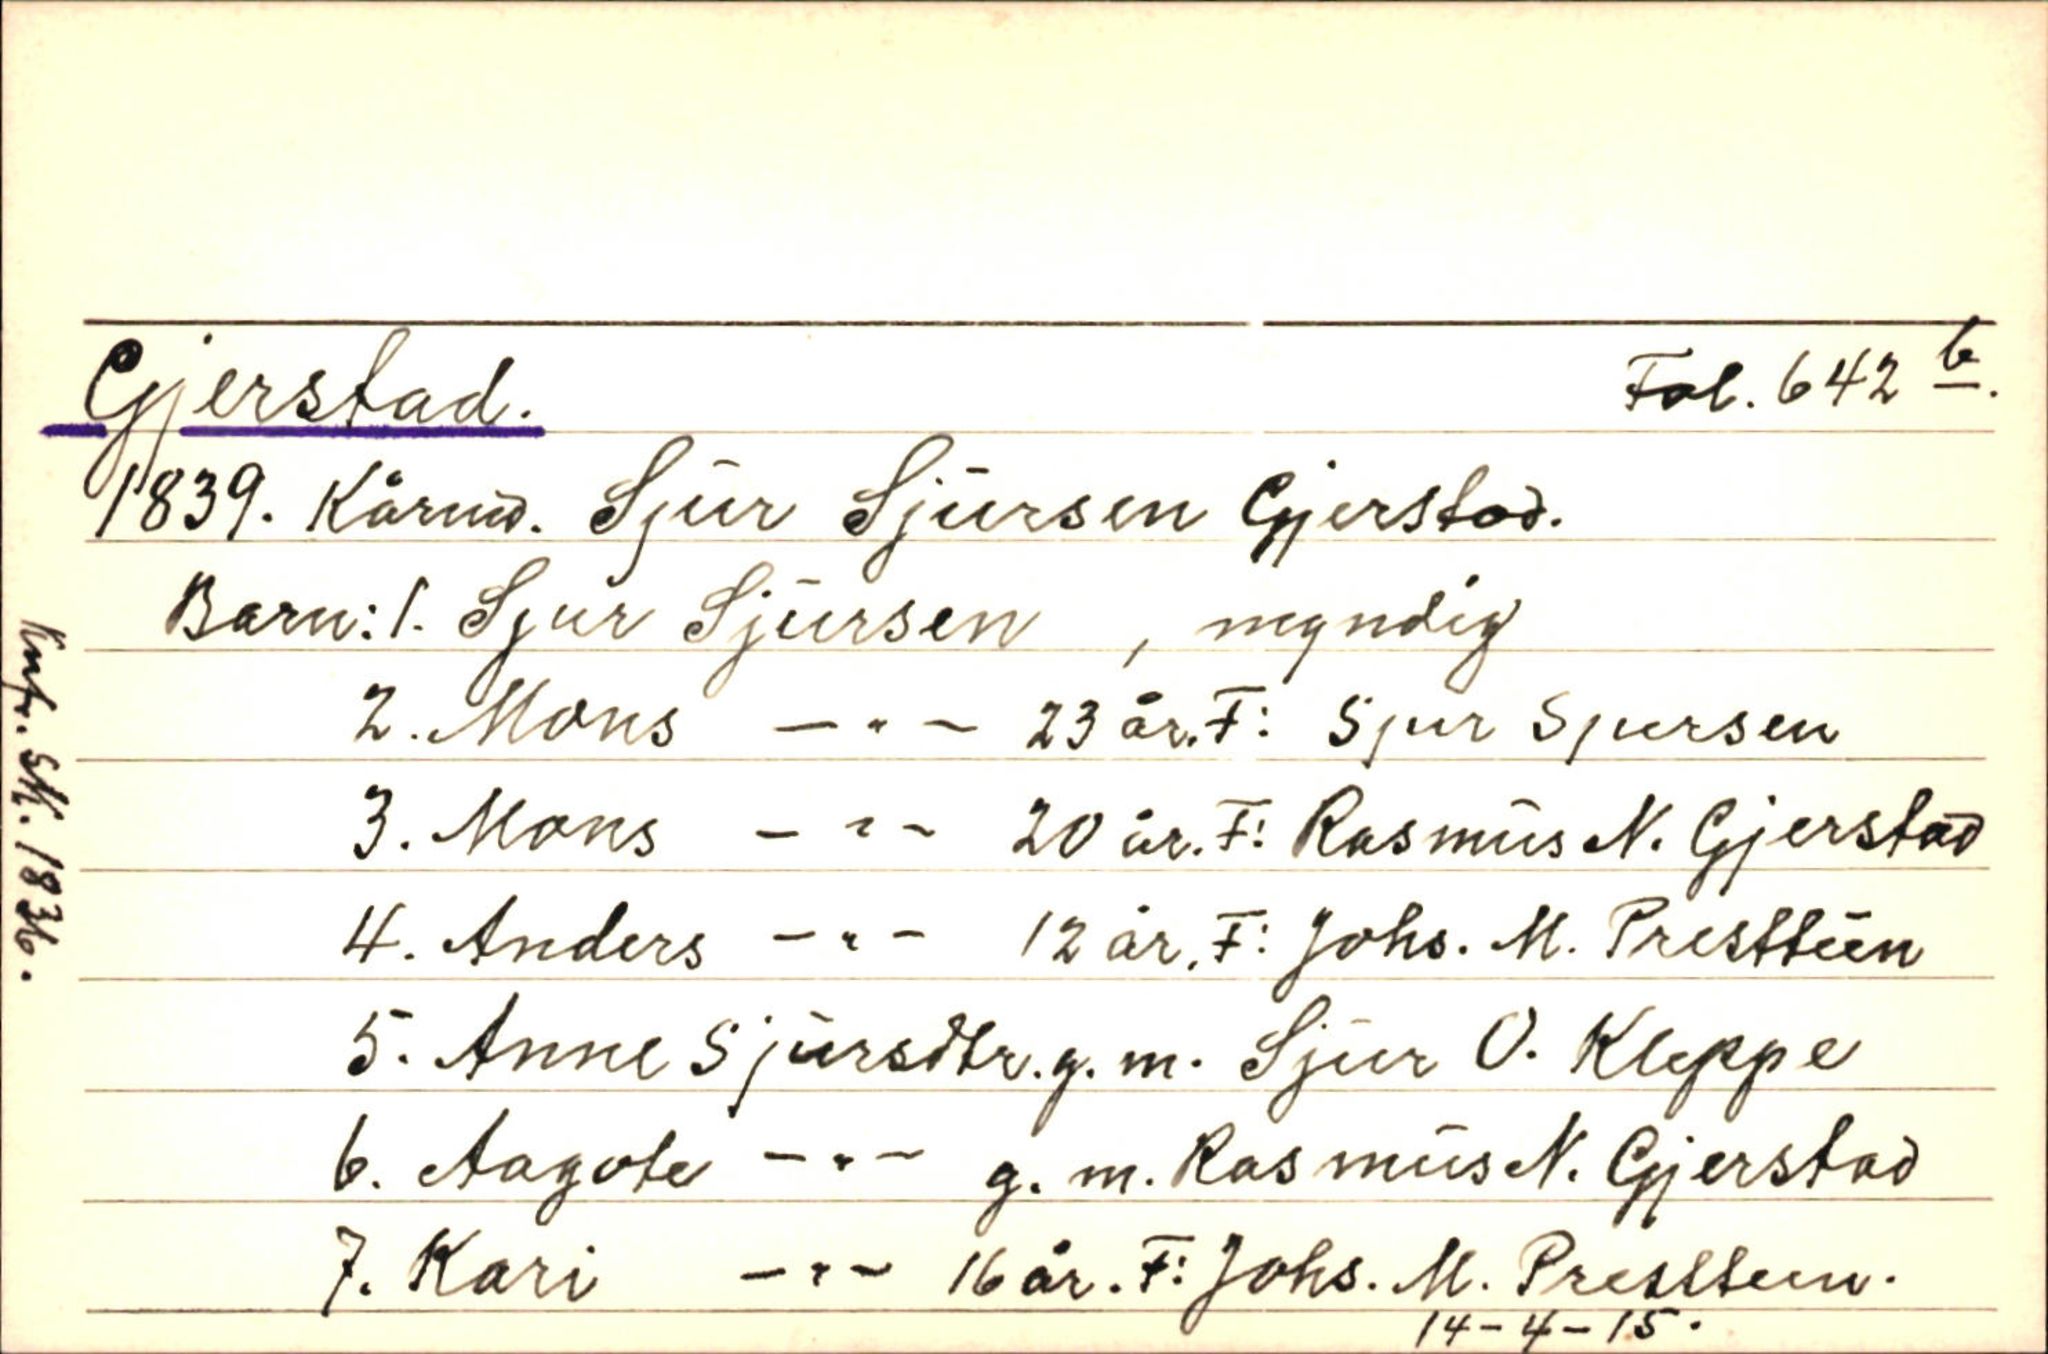 Gjerstad. Fol. 642 b.
1839. Kårmd. Sjur Sjursen Gjerstad.
Barn: 1. Sjur Sjursen , myndig
2. Mons — " — 23 år. F: Sjur Sjursen
3. Mons — " — 20 år. F: Rasmus N. Gjerstad
4. Anders — " — 12 år. F: Johs. M. Presttun
5. Anne Sjursdtr. g. m. Sjur O. Kleppe
6. Aagote — " — g. m. Rasmus N. Gjerstad
7. Kari — " — 16 år. F: Johs. M. Presttun.
14-4-15.
1836.